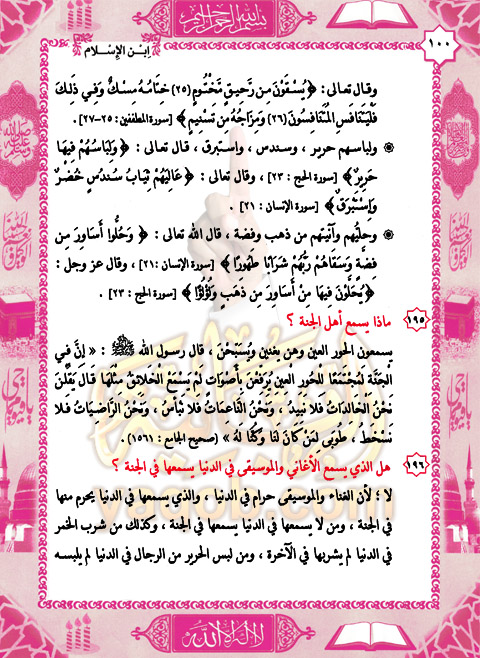 بسم الله الرحمن الرحيم
ابن الإسلام
١٠٠
وقال تعالى : ﴿ يُسْقَوْنَ مِن رَّحِيقٍ مَّخْتُومٍ (٢٥) خِتَامُهُ مِسْكٌ وَفِي ذَلِكَ
فَلْيَتَنَافَسِ الْمُتَنَافِسُونَ (٢٦) وَمِزَاجُهُ مِن تَسْنِيمٍ ﴾ [سورة المطففين : ٢٥-٢٧] .
ولباسهم حرير ، وسندس ، واستبرق ، قال تعالى : ﴿ وَلِبَاسُهُمْ فِيهَا
حَرِيرٌ ﴾ [سورة الحج : ٢٣] ، وقال تعالى : ﴿ عَالِيَهُمْ ثِيَابُ سُندُسٍ خُضْرٌ
وَإِسْتَبْرَقٌ ﴾ [سورة الإنسان : ٢١] .
وحليُّهم وآنيتهم من ذهب وفضة ، قال الله تعالى : ﴿ وَحُلُّوا أَسَاوِرَ مِن
فِضَّةٍ وَسَقَاهُمْ رَبُّهُمْ شَرَابًا طَهُورًا ﴾ [سورة الإنسان : ٢١] ، وقال عز وجل :
﴿ يُحَلَّوْنَ فِيهَا مِنْ أَسَاوِرَ مِن ذَهَبٍ وَلُؤْلُؤًا ﴾ [سورة الحج : ٢٣] .
١٩٥ ماذا يسمع أهل الجنة ؟
يسمعون الحور العين وهن يغنين ويُسَبِّحْنَ ، قال رسول الله ﷺ : « إِنَّ فِي
الْجَنَّةِ لَمُجْتَمَعًا لِلْحُورِ الْعِينِ يُرَفِّعْنَ بِأَصْوَاتٍ لَمْ يَسْمَعْ الْخَلَائِقُ مِثْلَهَا قَالَ يَقُلْنَ
نَحْنُ الْخَالِدَاتُ فَلَا نَبِيدُ ، وَنَحْنُ النَّاعِمَاتُ فَلَا نَبْأَسُ ، وَنَحْنُ الرَّاضِيَاتُ فَلَا
نَسْخَطُ ، طُوبَى لِمَنْ كَانَ لَنَا وَكُنَّا لَهُ » (صحيح الجامع : ١٥٦١) .
١٩٦ هل الذي يسمع الأغاني والموسيقى في الدنيا يسمعها في الجنة ؟
لا ؛ لأن الغناء والموسيقى حرام في الدنيا ، والذي يسمعها في الدنيا يحرم منها
في الجنة ، ومن لا يسمعها في الدنيا يسمعها في الجنة ، وكذلك من شرب الخمر
في الدنيا لم يشربها في الآخرة ، ومن لبس الحرير من الرجال في الدنيا لم يلبسه
لا إله إلا الله